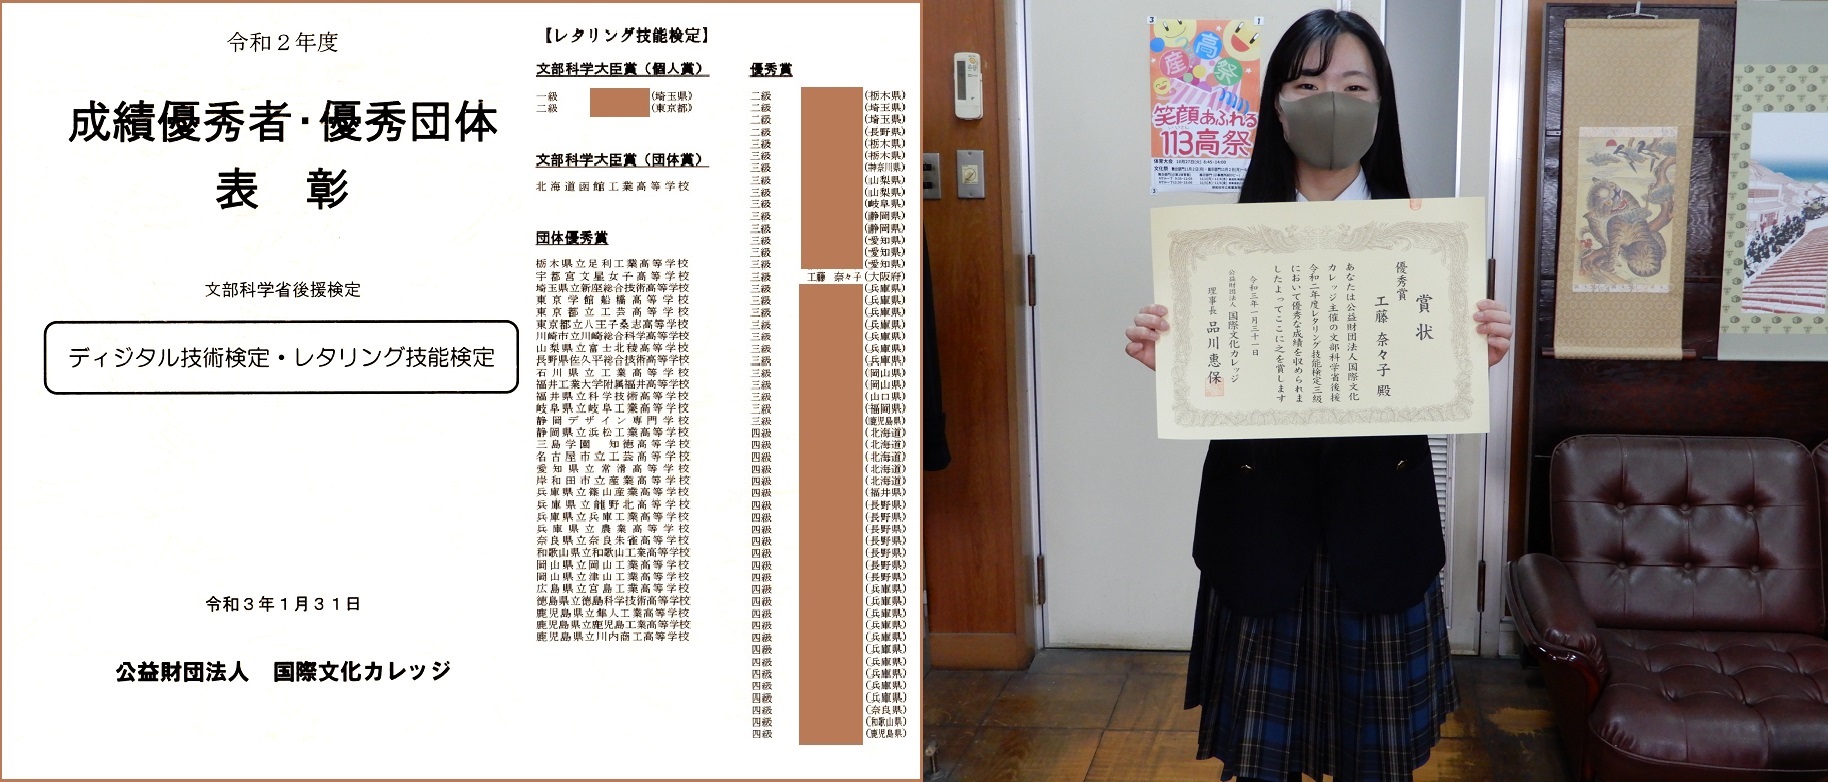 令和２年度
成績優秀者・優秀団体
表　彰
文部科学省後援検定
ディジタル技術検定・レタリング技能検定
令和３年１月３１日
公益財団法人　国際文化カレッジ
【レタリング技能検定】
文部科学大臣賞（個人賞）
一級　(埼玉県)
二級　(東京都)
文部科学大臣賞（団体賞）
北海道函館工業高等学校
団体優秀賞
栃木県立足利工業高等学校
宇都宮文星女子高等学校
埼玉県立新座総合技術高等学校
東京学館船橋高等学校
東京都立工芸高等学校
東京都立八王子桑志高等学校
川崎市立川崎総合科学高等学校
山梨県立富士北稜高等学校
長野県佐久平総合技術高等学校
石川県立工業高等学校
福井工業大学附属福井高等学校
福井県立科学技術高等学校
岐阜県立岐阜工業高等学校
静岡デザイン専門学校
静岡県立浜松工業高等学校
三島学園　知徳高等学校
名古屋市立工芸高等学校
愛知県立常滑高等学校
岸和田市立産業高等学校
兵庫県立篠山産業高等学校
兵庫県立龍野北高等学校
兵庫県立兵庫工業高等学校
兵庫県立農業高等学校
奈良県立奈良朱雀高等学校
和歌山県立和歌山工業高等学校
岡山県立岡山工業高等学校
岡山県立津山工業高等学校
広島県立宮島工業高等学校
徳島県立徳島科学技術高等学校
鹿児島県立隼人工業高等学校
鹿児島県立鹿児島工業高等学校
鹿児島県立川内商工高等学校
優秀賞
二級　(栃木県)
二級　(埼玉県)
二級　(埼玉県)
二級　(長野県)
三級　(栃木県)
三級　(栃木県)
三級　(神奈川県)
三級　(山梨県)
三級　(山梨県)
三級　(岐阜県)
三級　(静岡県)
三級　(静岡県)
三級　(愛知県)
三級　(愛知県)
三級　(愛知県)
三級　工藤　奈々子(大阪府)
三級　(兵庫県)
三級　(兵庫県)
三級　(兵庫県)
三級　(兵庫県)
三級　(兵庫県)
三級　(兵庫県)
三級　(兵庫県)
三級　(岡山県)
三級　(岡山県)
三級　(山口県)
三級　(福岡県)
三級　(鹿児島県)
四級　(北海道)
四級　(北海道)
四級　(北海道)
四級　(北海道)
四級　(北海道)
四級　(福井県)
四級　(長野県)
四級　(長野県)
四級　(長野県)
四級　(長野県)
四級　(長野県)
四級　(長野県)
四級　(長野県)
四級　(兵庫県)
四級　(兵庫県)
四級　(兵庫県)
四級　(兵庫県)
四級　(兵庫県)
四級　(兵庫県)
四級　(兵庫県)
四級　(兵庫県)
四級　(兵庫県)
四級　(奈良県)
四級　(和歌山県)
四級　(鹿児島県)
高
産
祭
笑顔あふれる
113高祭
賞状
優秀賞
工藤　奈々子　殿
あなたは公益財団法人国際文化
カレッジ主催の文部科学省後援
令和二年度レタリング技能検定三級
において優秀な成績を収められま
したよってここに之を賞します
令和三年一月三十一日
公益財団法人　国際文化カレッジ
理事長　品川惠保